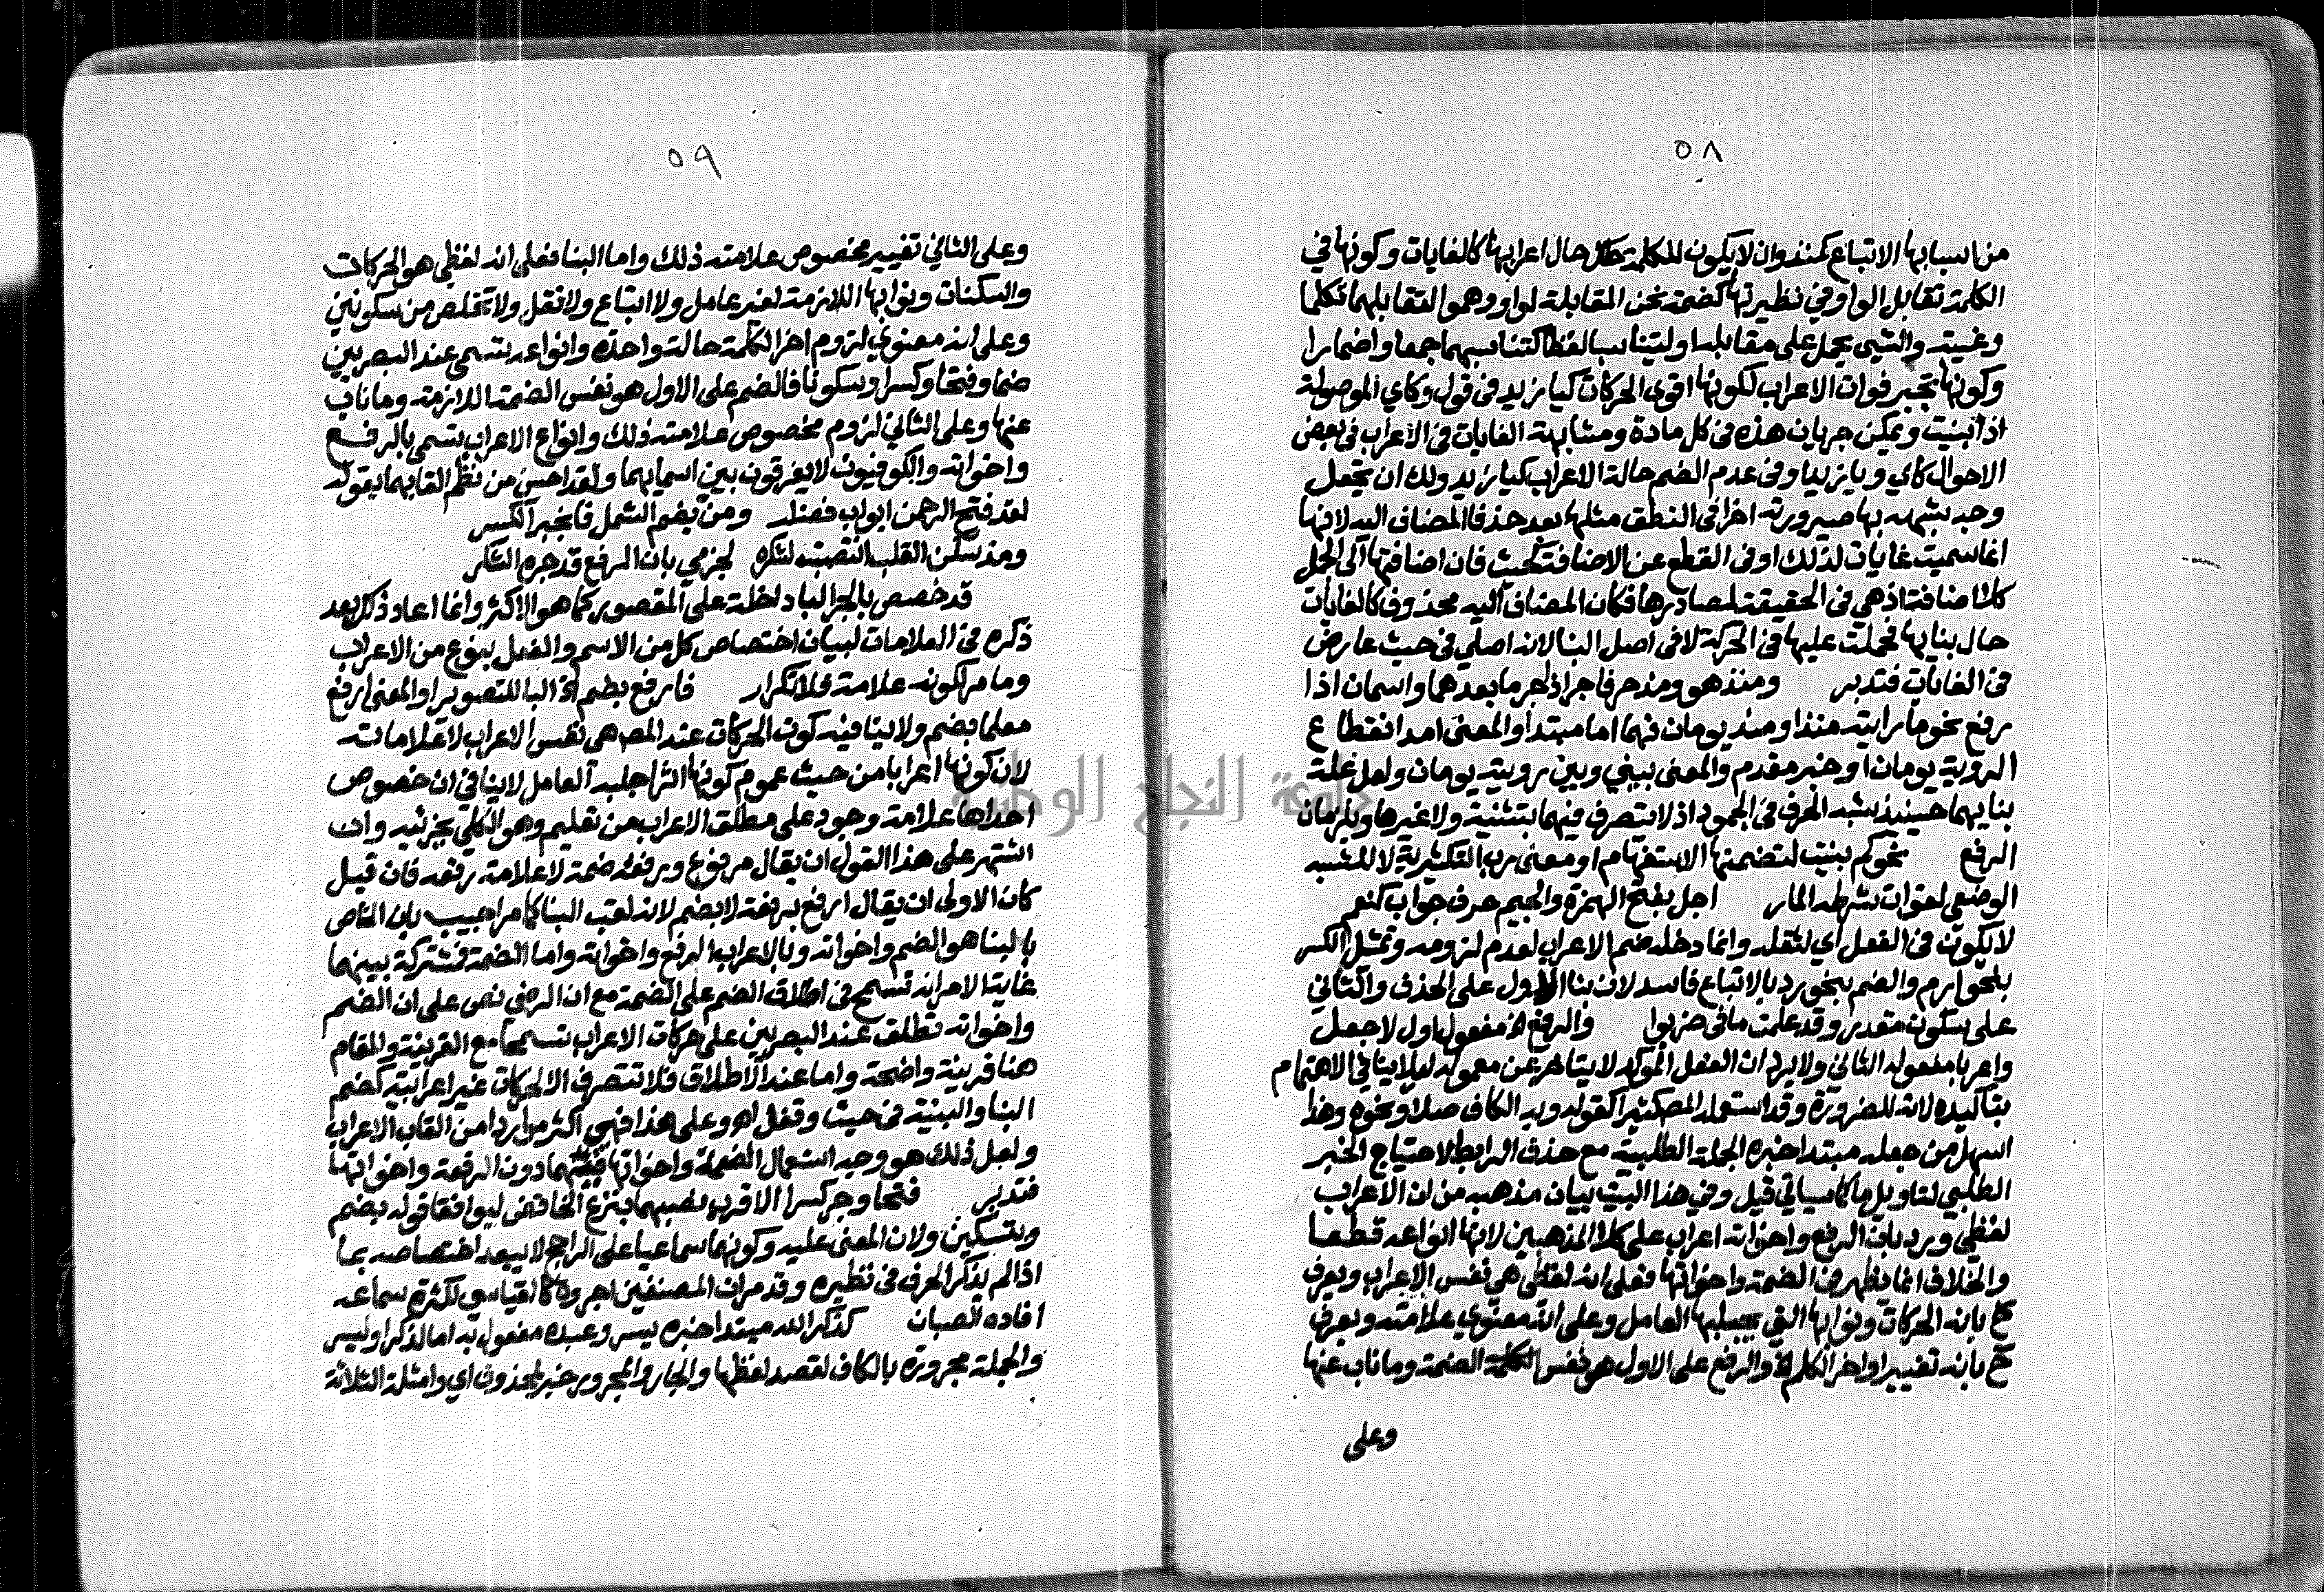 ٥٨
من اسبابها الاتباع كمنذ وان لا يكون للكلمة حال اعرابها كالغايات وكونها في
الكلمة تقابل الواو في نظيرتها كضمة نحن المقابلة لواو وهموا لتقابلهما تكلما
وغيبة والشيي يحمل على مقابله وليتناسبا لفظا كتناسبهما جمعا واضمارا
وكونها تجبر فوات الاعراب لكونها اقوى الحركات كيا زيد في قول وكاي الموصولة
اذا بنيت ويمكن جريان هذه في كل مادة ومشابهة الغايات في الاعراب في بعض
الاحوال كاي ويا زيدا وفي عدم الضم حالة الاعراب كيا زيد ولك ان تجعل
وجه شبهه بها صيرورته اخرا في النطق مثلها بعد حذف المضاف اليه لانها
انما سميت غايات لذلك او في القطع عن الاضافة كحيث فان اضافتها الى الجمل
كلا اضافة اذ هي في الحقيقة لمصادرها فكان المضاف اليه محذوف كالغايات
حال بنايها فحملت عليها في الحركة لا في اصل البنا لانه اصلي في حيث عارض
في الغايات فتدبر ومنذ هو ومذ حرفا جر اذا جر ما بعدهما واسمان اذا
رفع نحو ما رايته منذ او منذ يومان فهما اما مبتدا والمعنى امد انقطاع
الروية يومان او خبر مقدم والمعنى بيني وبين رويته يومان ولعل علة
بنايهما حينئذ شبه الحرف في الجمود اذ لا يتصرف فيهما بتثنية ولا غيرها ويلزمان
الرفع نحو كم بنيت لتضمنها الاستفهام او معنى رب التكثيرية لا للشبه
الوضعي لفوات شرطه المار اجل بفتح الهمزة والجيم حرف جواب كنعم
لا يكون في الفعل اي لثقله وانما دخله ضم الاعراب لعدم لزومه وتمثيل الكسر
بنحو ارم والضم بنحو رد بالاتباع فاسد لان بنا الاول على الحذف والثاني
على سكون مقدر وقد علمت ما في ضربوا والرفع الخ مفعول اول لاجعل
واعربا مفعوله الثاني ولا يرد ان الفعل المؤكد لا يتاخر عن معموله لئلا ينافي الاهتمام
بتاكيده لانه للضرورة وقد استعمله المص كثيرا كقوله وبه الكاف صلا ونحوه وهذا
اسهل من جعله مبتدا خبره الجملة الطلبية مع حذف الرابط لاحتياج الخبر
الطلبي لتاويل ما كما سياتي قيل وفي هذا البيت بيان مذهبه من ان الاعراب
لفظي ويرد بان الرفع واخواته اعراب على كلا المذهبين لانها انواعه قطعا
والخلاف انما يظهر في الضمة واخواتها فعلى انه لفظي هي نفس الاعراب ويعرف
ح بانه الحركات ونوابها التي يجلبها العامل وعلى انه معنوي علامته ويعرف
ح بانه تغيير اواخر الكلم الخ والرفع على الاول هو نفس الضمة وما ناب عنها
وعلى
٥٩
وعلى الثاني تغيير مخصوص علامته ذلك واما البنا فعلى انه لفظي هو الحركات
والسكنات ونوابها اللازمة لغير عامل ولا اتباع ولا نقل ولا تخلص من سكونين
وعلى انه معنوي لزوم اخر الكلمة حالة واحدة وانواعه تسمى عند البصريين
ضما وفتحا وكسرا وسكونا فالضم على الاول هو نفس الضمة اللازمة وما ناب
عنها وعلى الثاني لزوم مخصوص علامته ذلك وانواع الاعراب تسمى بالرفع
واخواته والكوفيون لا يفرقون بين اسمايهما ولقد احسن من نظم القابهما بقوله
لقد فتح الرحمن ابواب فضله ومن بضم الشمل فانجبر الكسر
ومذ سكن القلب انتصبت لشكره لجزمي بان الرفع قد جره الشكر
قد خصص بالجر الباء داخلة على المقصور كما هو الاكثر وانما اعاد ذكر بعد
ذكره في العلامات لبيان اختصاص كل من الاسم والفعل بنوع من الاعراب
وما مر لكونه علامة فلا تكرار فارفع بضم الخ البا للتصوير او المعنى ارفع
معلما بضم ولا ينافيه كون الحركات عند المص هي نفس الاعراب لا علاماته
لان كونها اعرابا من حيث عموم كونها اثرا جلبه العامل لا ينافي ان خصوص
احداها علامة وجود على مطلق الاعراب من تعليم وهو الكلي بجزئيه وان
اشتهر على هذا القول ان يقال مرفوع ورفعه ضمة لا علامة رفعه فان قيل
كان الاولى ان يقال ارفع برفعة لا بضم لانه لقب البنا كما مر اجيب بان الخاص
بالبنا هو الضم واخواته وبالاعراب الرفع واخواته واما الضمة فمشتركة بينهما
غاية الامر انه تسمح في اطلاق الضم على الضمة مع ان الرضي نص على ان الضم
واخواته تطلق عند البصريين على حركات الاعراب تسمحا مع القرينة وللمقام
هنا قرينة واضحة واما عند الاطلاق فلا تنصرف الا لحركات غير اعرابية كضم
البنا والبنية في حيث وقفل اه وعلى هذا فهي اكثر موارد من القاب الاعراب
ولعل ذلك هو وجه استعمال الضمة واخواتها فيهما دون الرفعة واخواتها
فتدبر فتحا وجر كسرا الاقرب نصبهما بنزع الخافض ليوافقا قوله بضم
وبتسكين ولان المعنى عليه وكونهما سماعيا على الراجح لا يبعد اختصاصه بما
اذا لم يذكر الحرف في نظيره وقد مر ان المصنفين اجروه كالقياسي لكثرة سماعه
افاده الصبان كذكر الله مبتدا خبره يسر وعبده مفعول به اما لذكر او ليسر
والجملة مجرورة بالكاف لقصد لفظها والجار والمجرور خبر لمحذوف اي وامثلة الثلاثة
جامعة النجاح الوطنية